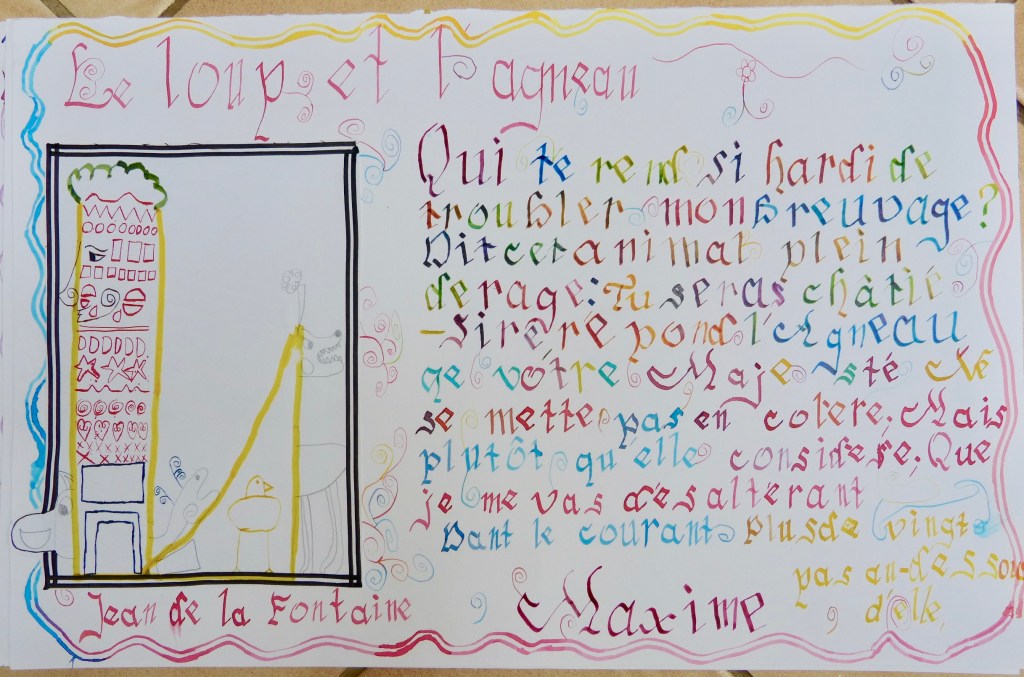 Le loup et l'agneau
Qui te rend si hardi de
troubler mon breuvage?
Dit cet animal plein
de rage: Tu seras châtié
-Sire répond l'Agneau
qe vôtre Majesté Ne
se mette pas en colère; Mais
plutôt qu'elle considère; Que
je me vas désaltérant
Dant le courant plus de vingt
pas au-dessous
d'elle,
Jean de la Fontaine
Maxime